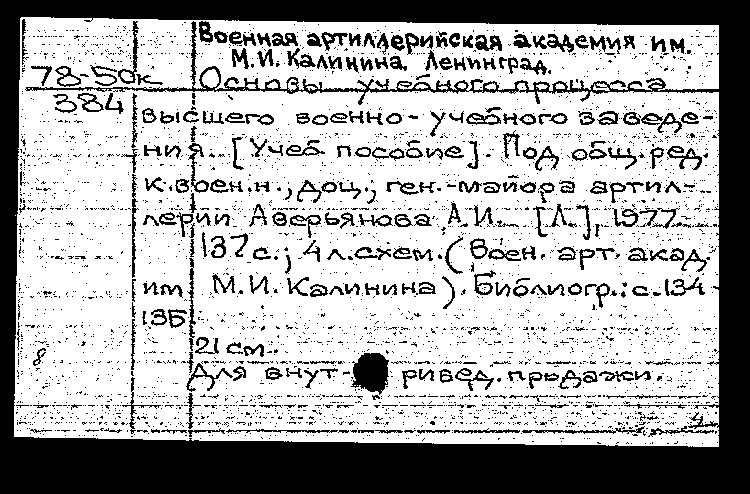 Военная артиллерийская академия им.
М.И. Калинина. Ленинград.
78-50к
384
Основы учебного процесса
высшего военно-учебного заведе-
ния. [Учеб. пособие]. Под общ. ред.
к. воен. н., доц., ген.-майора артил-
лерии Аверьянова А.И. [Л.], 1977.
137 с.; 4 л. схем. (Воен. арт. акад.
им М.И. Калинина). Библиогр.: с. 134-
135.
21 см.
Для внут- ривед. продажи.
8